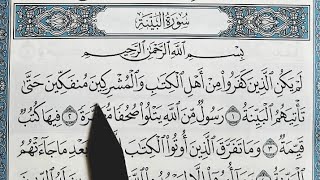 سُورَةُ البَيِّنَةِ
بِسْمِ ٱللَّهِ ٱلرَّحْمَٰنِ ٱلرَّحِيمِ
لَمْ يَكُنِ ٱلَّذِينَ كَفَرُوا۟ مِنْ أَهْلِ ٱلْكِتَٰبِ وَٱلْمُشْرِكِينَ مُنفَكِّينَ حَتَّىٰ
تَأْتِيَهُمُ ٱلْبَيِّنَةُ ١ رَسُولٌ مِّنَ ٱللَّهِ يَتْلُوا۟ صُحُفًا مُّطَهَّرَةً ٢ فِيهَا كُتُبٌ
قَيِّمَةٌ ٣ وَمَا تَفَرَّقَ ٱلَّذِينَ أُوتُوا۟ ٱلْكِتَٰبَ بَعْدِ مَا جَآءَتْهُمُ